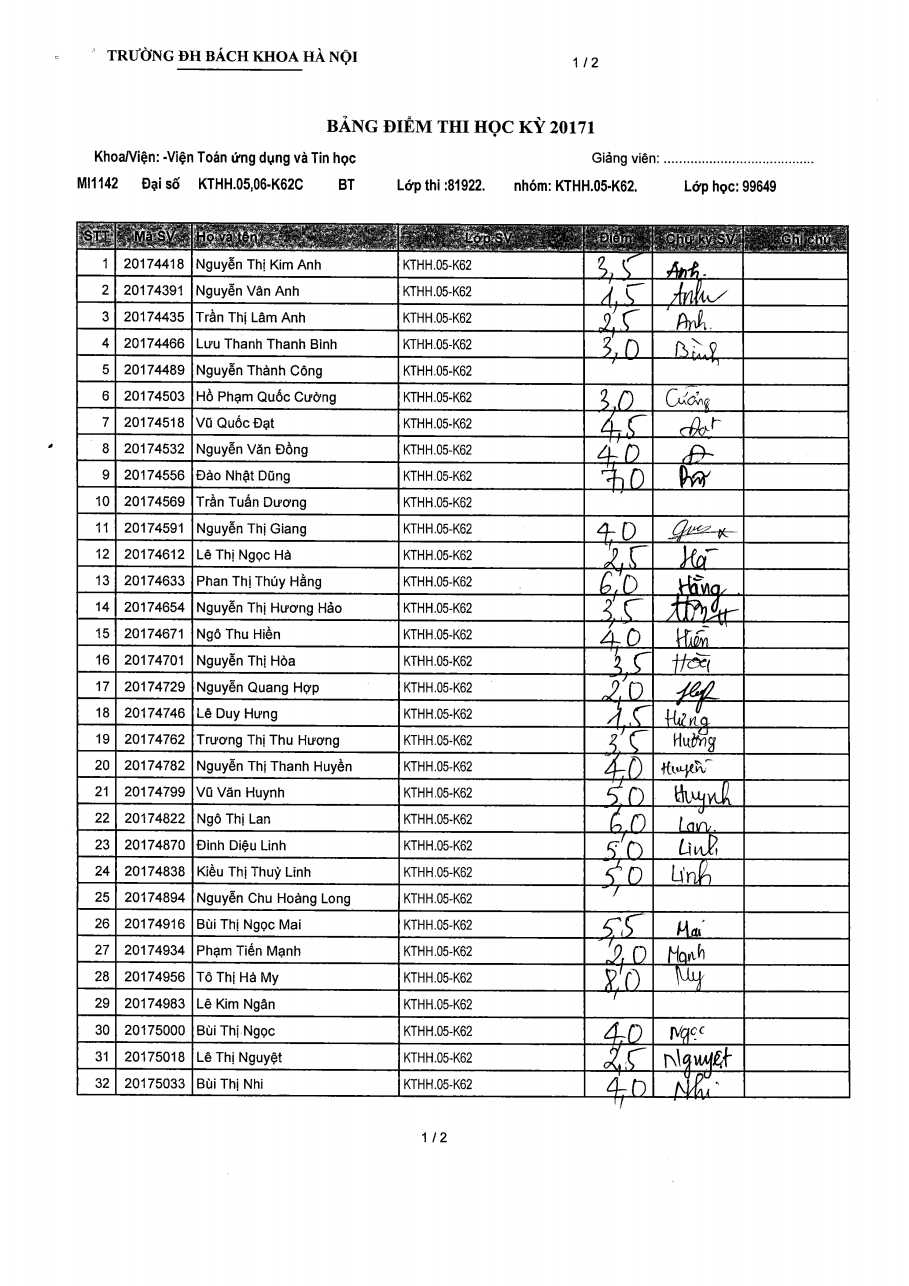 TRƯỜNG ĐH BÁCH KHOA HÀ NỘI 1 / 2
BẢNG ĐIỂM THI HỌC KỲ 20171
Khoa/Viện: -Viện Toán ứng dụng và Tin học Giảng viên: ..........................................
MI1142 Đại số KTHH.05,06-K62C BT Lớp thi :81922. nhóm: KTHH.05-K62. Lớp học: 99649
STT Mã SV Họ và tên Lớp SV Điểm Chữ ký SV Ghi chú
1 20174418 Nguyễn Thị Kim Anh KTHH.05-K62 3,5 Anh.
2 20174391 Nguyễn Vân Anh KTHH.05-K62 1,5 Anh
3 20174435 Trần Thị Lâm Anh KTHH.05-K62 2,5 Anh.
4 20174466 Lưu Thanh Thanh Bình KTHH.05-K62 3,0 Bình
5 20174489 Nguyễn Thành Công KTHH.05-K62
6 20174503 Hồ Phạm Quốc Cường KTHH.05-K62 3,0 Cường
7 20174518 Vũ Quốc Đạt KTHH.05-K62 4,5 Đạt
8 20174532 Nguyễn Văn Đồng KTHH.05-K62 4,0 Đ
9 20174556 Đào Nhật Dũng KTHH.05-K62 7,0
10 20174569 Trần Tuấn Dương KTHH.05-K62
11 20174591 Nguyễn Thị Giang KTHH.05-K62 4,0
12 20174612 Lê Thị Ngọc Hà KTHH.05-K62 2,5 Hà
13 20174633 Phan Thị Thúy Hằng KTHH.05-K62 6,0 Hằng
14 20174654 Nguyễn Thị Hương Hảo KTHH.05-K62 3,5
15 20174671 Ngô Thu Hiền KTHH.05-K62 4,0 Hiền
16 20174701 Nguyễn Thị Hòa KTHH.05-K62 3,5 Hòa
17 20174729 Nguyễn Quang Hợp KTHH.05-K62 2,0 Hợp
18 20174746 Lê Duy Hưng KTHH.05-K62 1,5 Hưng
19 20174762 Trương Thị Thu Hương KTHH.05-K62 3,5 Hương
20 20174782 Nguyễn Thị Thanh Huyền KTHH.05-K62 4,0 Huyền
21 20174799 Vũ Văn Huynh KTHH.05-K62 5,0 Huynh
22 20174822 Ngô Thị Lan KTHH.05-K62 6,0 Lan.
23 20174870 Đinh Diệu Linh KTHH.05-K62 5,0 Linh
24 20174838 Kiều Thị Thuỳ Linh KTHH.05-K62 5,0 Linh
25 20174894 Nguyễn Chu Hoàng Long KTHH.05-K62
26 20174916 Bùi Thị Ngọc Mai KTHH.05-K62 5,5 Mai
27 20174934 Phạm Tiến Mạnh KTHH.05-K62 2,0 Mạnh
28 20174956 Tô Thị Hà My KTHH.05-K62 8,0 My
29 20174983 Lê Kim Ngân KTHH.05-K62
30 20175000 Bùi Thị Ngọc KTHH.05-K62 4,0 Ngọc
31 20175018 Lê Thị Nguyệt KTHH.05-K62 2,5 Nguyệt
32 20175033 Bùi Thị Nhi KTHH.05-K62 4,0 Nhi
1 / 2